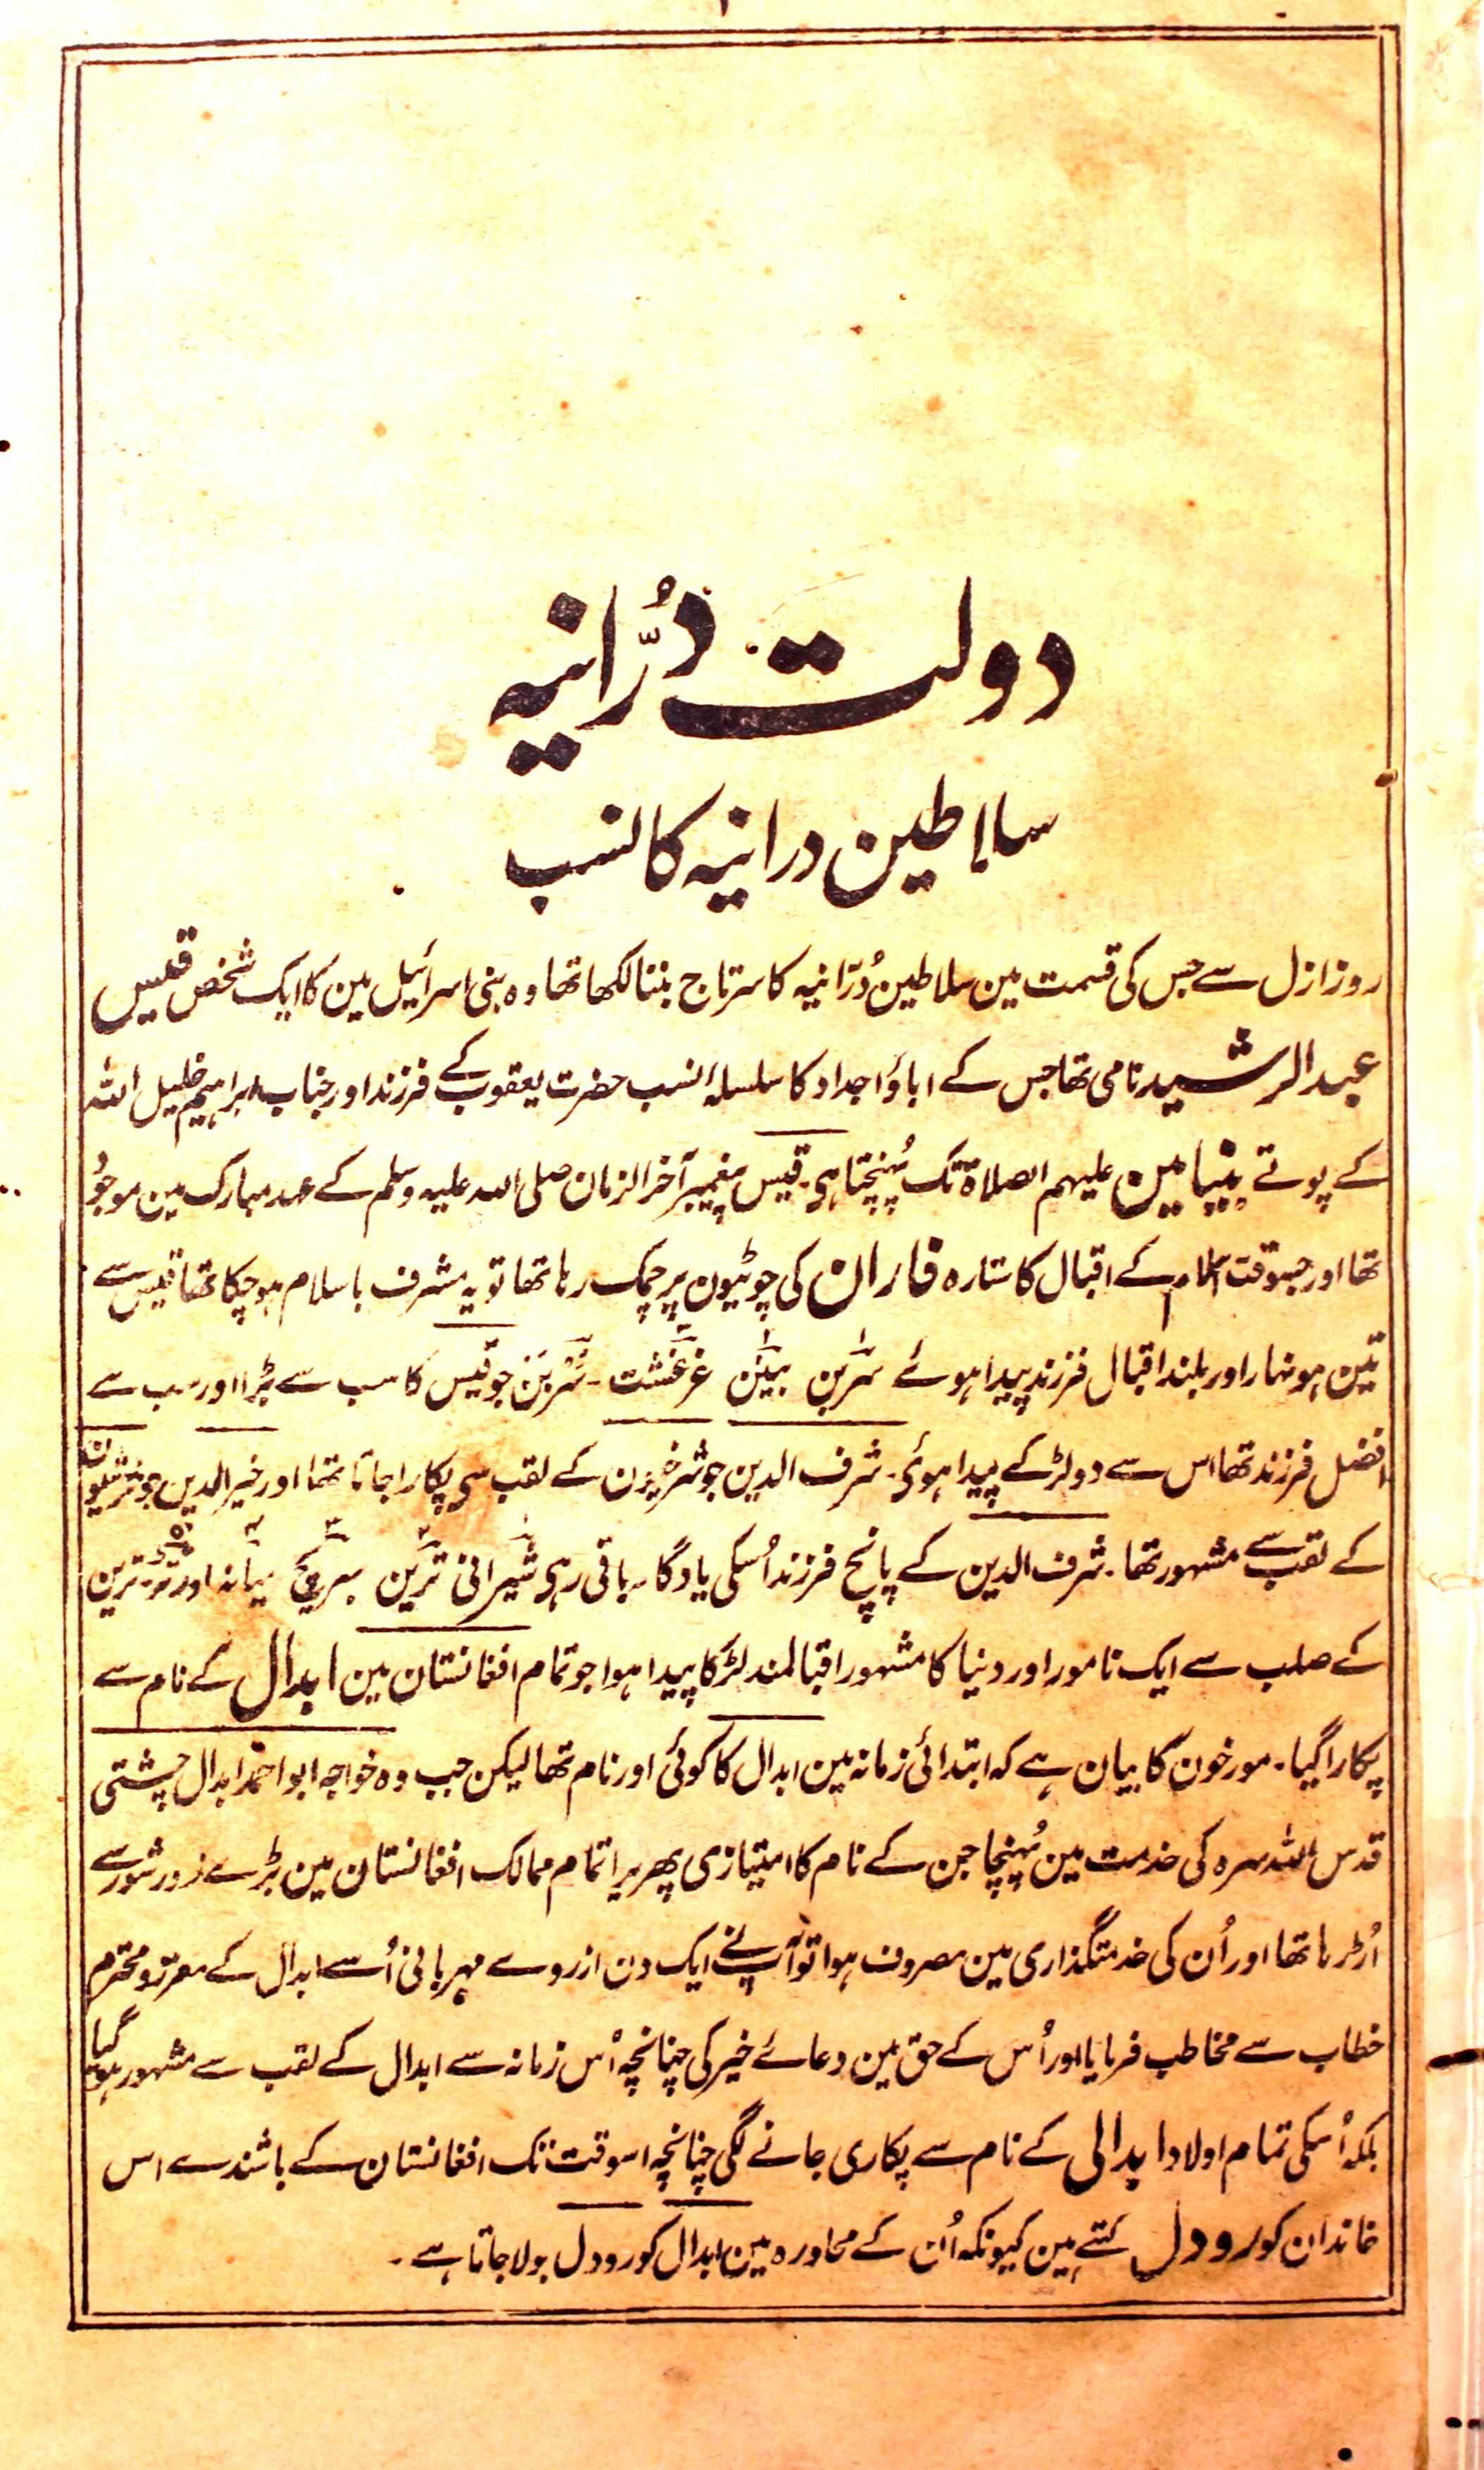 دولت دُرّانیہ
سلاطین درانیہ کا نسب
روز ازل سے جس کی قسمت مین سلاطین دُرّانیہ کا سرتاج بننا لکھا تھا وہ بنی اسرائیل مین کا ایک شخص قیس
عبدالرشید نامی تھا جس کے اباؤ اجداد کا سلسلۂ نسب حضرت یعقوب کے فرزند اور جناب ابراہیم خلیل اللہ
کے پوتے بنیامین علیہم الصلاۃ تک پُہنچتا ہی۔ قیس پیغمبر آخر الزمان صلی اللہ علیہ وسلم کے عہد مبارک مین موجُو
تھا اور جسوقت اسلام کے اقبال کا ستارہ فاران کی چوٹیون پر چمک رہا تھا تو یہ مشرف باسلام ہو چکا تھا قیس سے
تین ہونہار اور بلند اقبال فرزند پیدا ہوئے سَرَّبن بیٹن غرغشت۔ سَرَّبَن جو قیس کا سب سے بڑا اور سب سے
افضل فرزند تھا اس سے دو لڑکے پیدا ہوئی۔ شرف الدین جو شرخبون کے لقب سی پکارا جاتا تھا اور خیر الدین جو خرشبون
کے لقب سے مشہور تھا۔ شرف الدین کے پانچ فرزند اُسکی یادگار باقی رہی شیرانی ترین بریچ میانہ اور ترین
کے صلب سے ایک نامور اور دنیا کا مشہور اقبالمند لڑکا پیدا ہوا جو تمام افغانستان مین ابدال کے نام سے
پکارا گیا۔ مورخون کا بیان ہے کہ ابتدائی زمانہ مین ابدال کا کوئی اور نام تھا لیکن جب وہ خواجہ ابو احمد ابدال چشتی
قدس اللہ سرہ کی خدمت مین پُہنچا جن کے نام کا امتیازی پھریرا تمام ممالک افغانستان مین بڑے زور شور سے
اُڑ رہا تھا اور اُن کی خدمتگذاری مین مصروف ہوا تو آپ نے ایک دن ازروے مہربانی اُسے ابدال کے معزز و محترم
خطاب سے مخاطب فرمایا اور اُس کے حق مین دعائے خیر کی چنانچہ اُس زمانہ سے ابدال کے لقب سے مشہور ہو گیا
بلکہ اُسکی تمام اولاد ابدالی کے نام سے پکاری جانے لگی چنانچہ اسوقت تک افغانستان کے باشندے اس
خاندان کو رودل کہتے ہین کیونکہ اُن کے محاورہ مین ابدال کو رودل بولا جاتا ہے۔